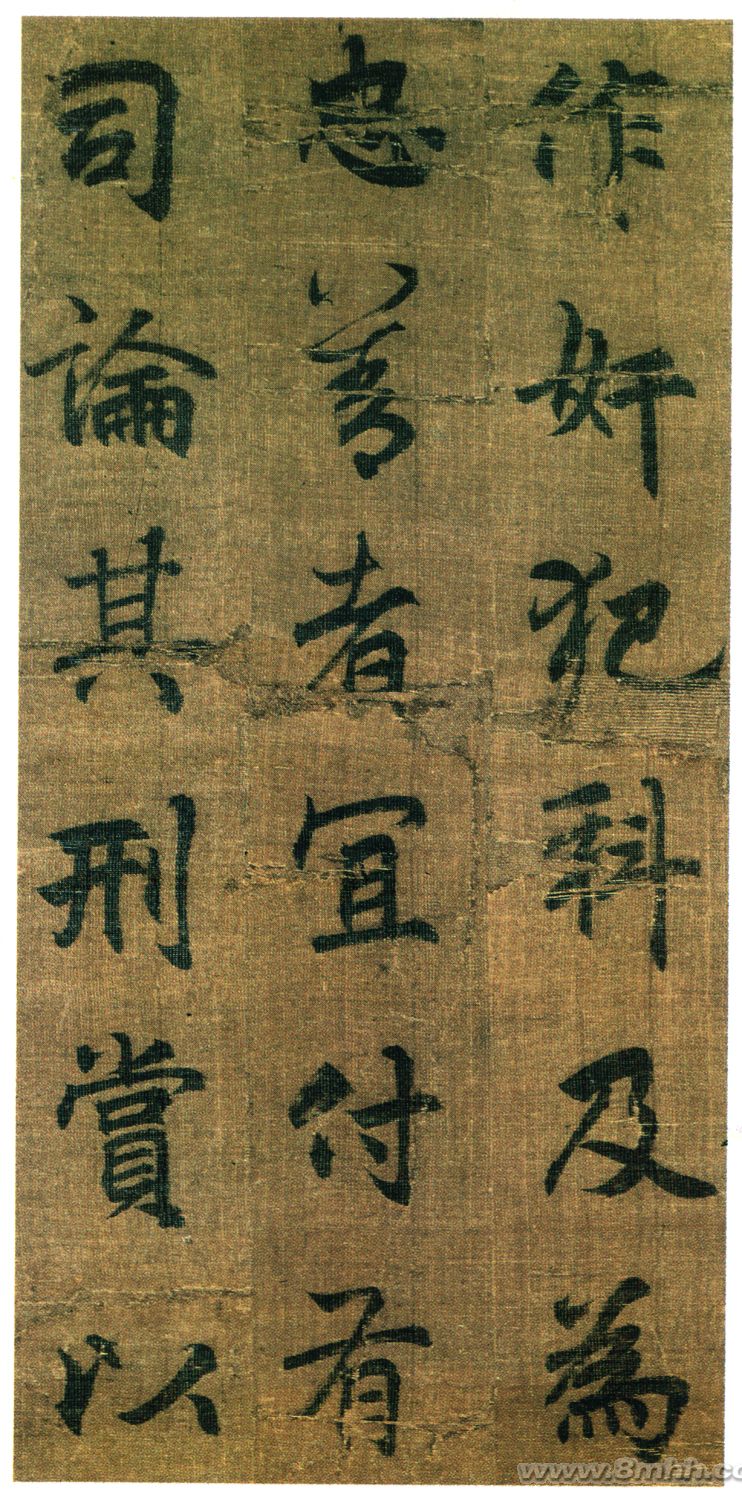 作奸犯科及為
忠善者宜付有
司論其刑賞以
www.8mhh.co